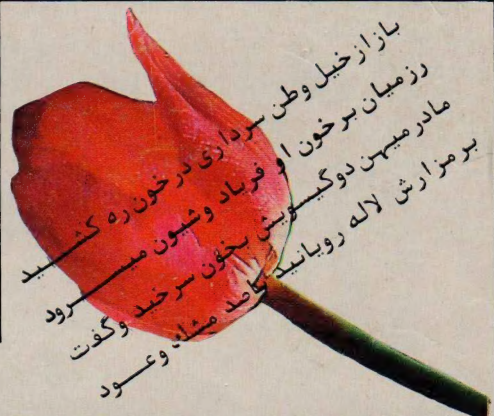 باز از خیل وطن سرداری در خون ره کشید
رزمیان بر خون او فریاد و شیون میرود
مادر میهن دو گیسویش بخون سرخید و گفت
بر مزارش لاله رویانید باصد مشك وعود